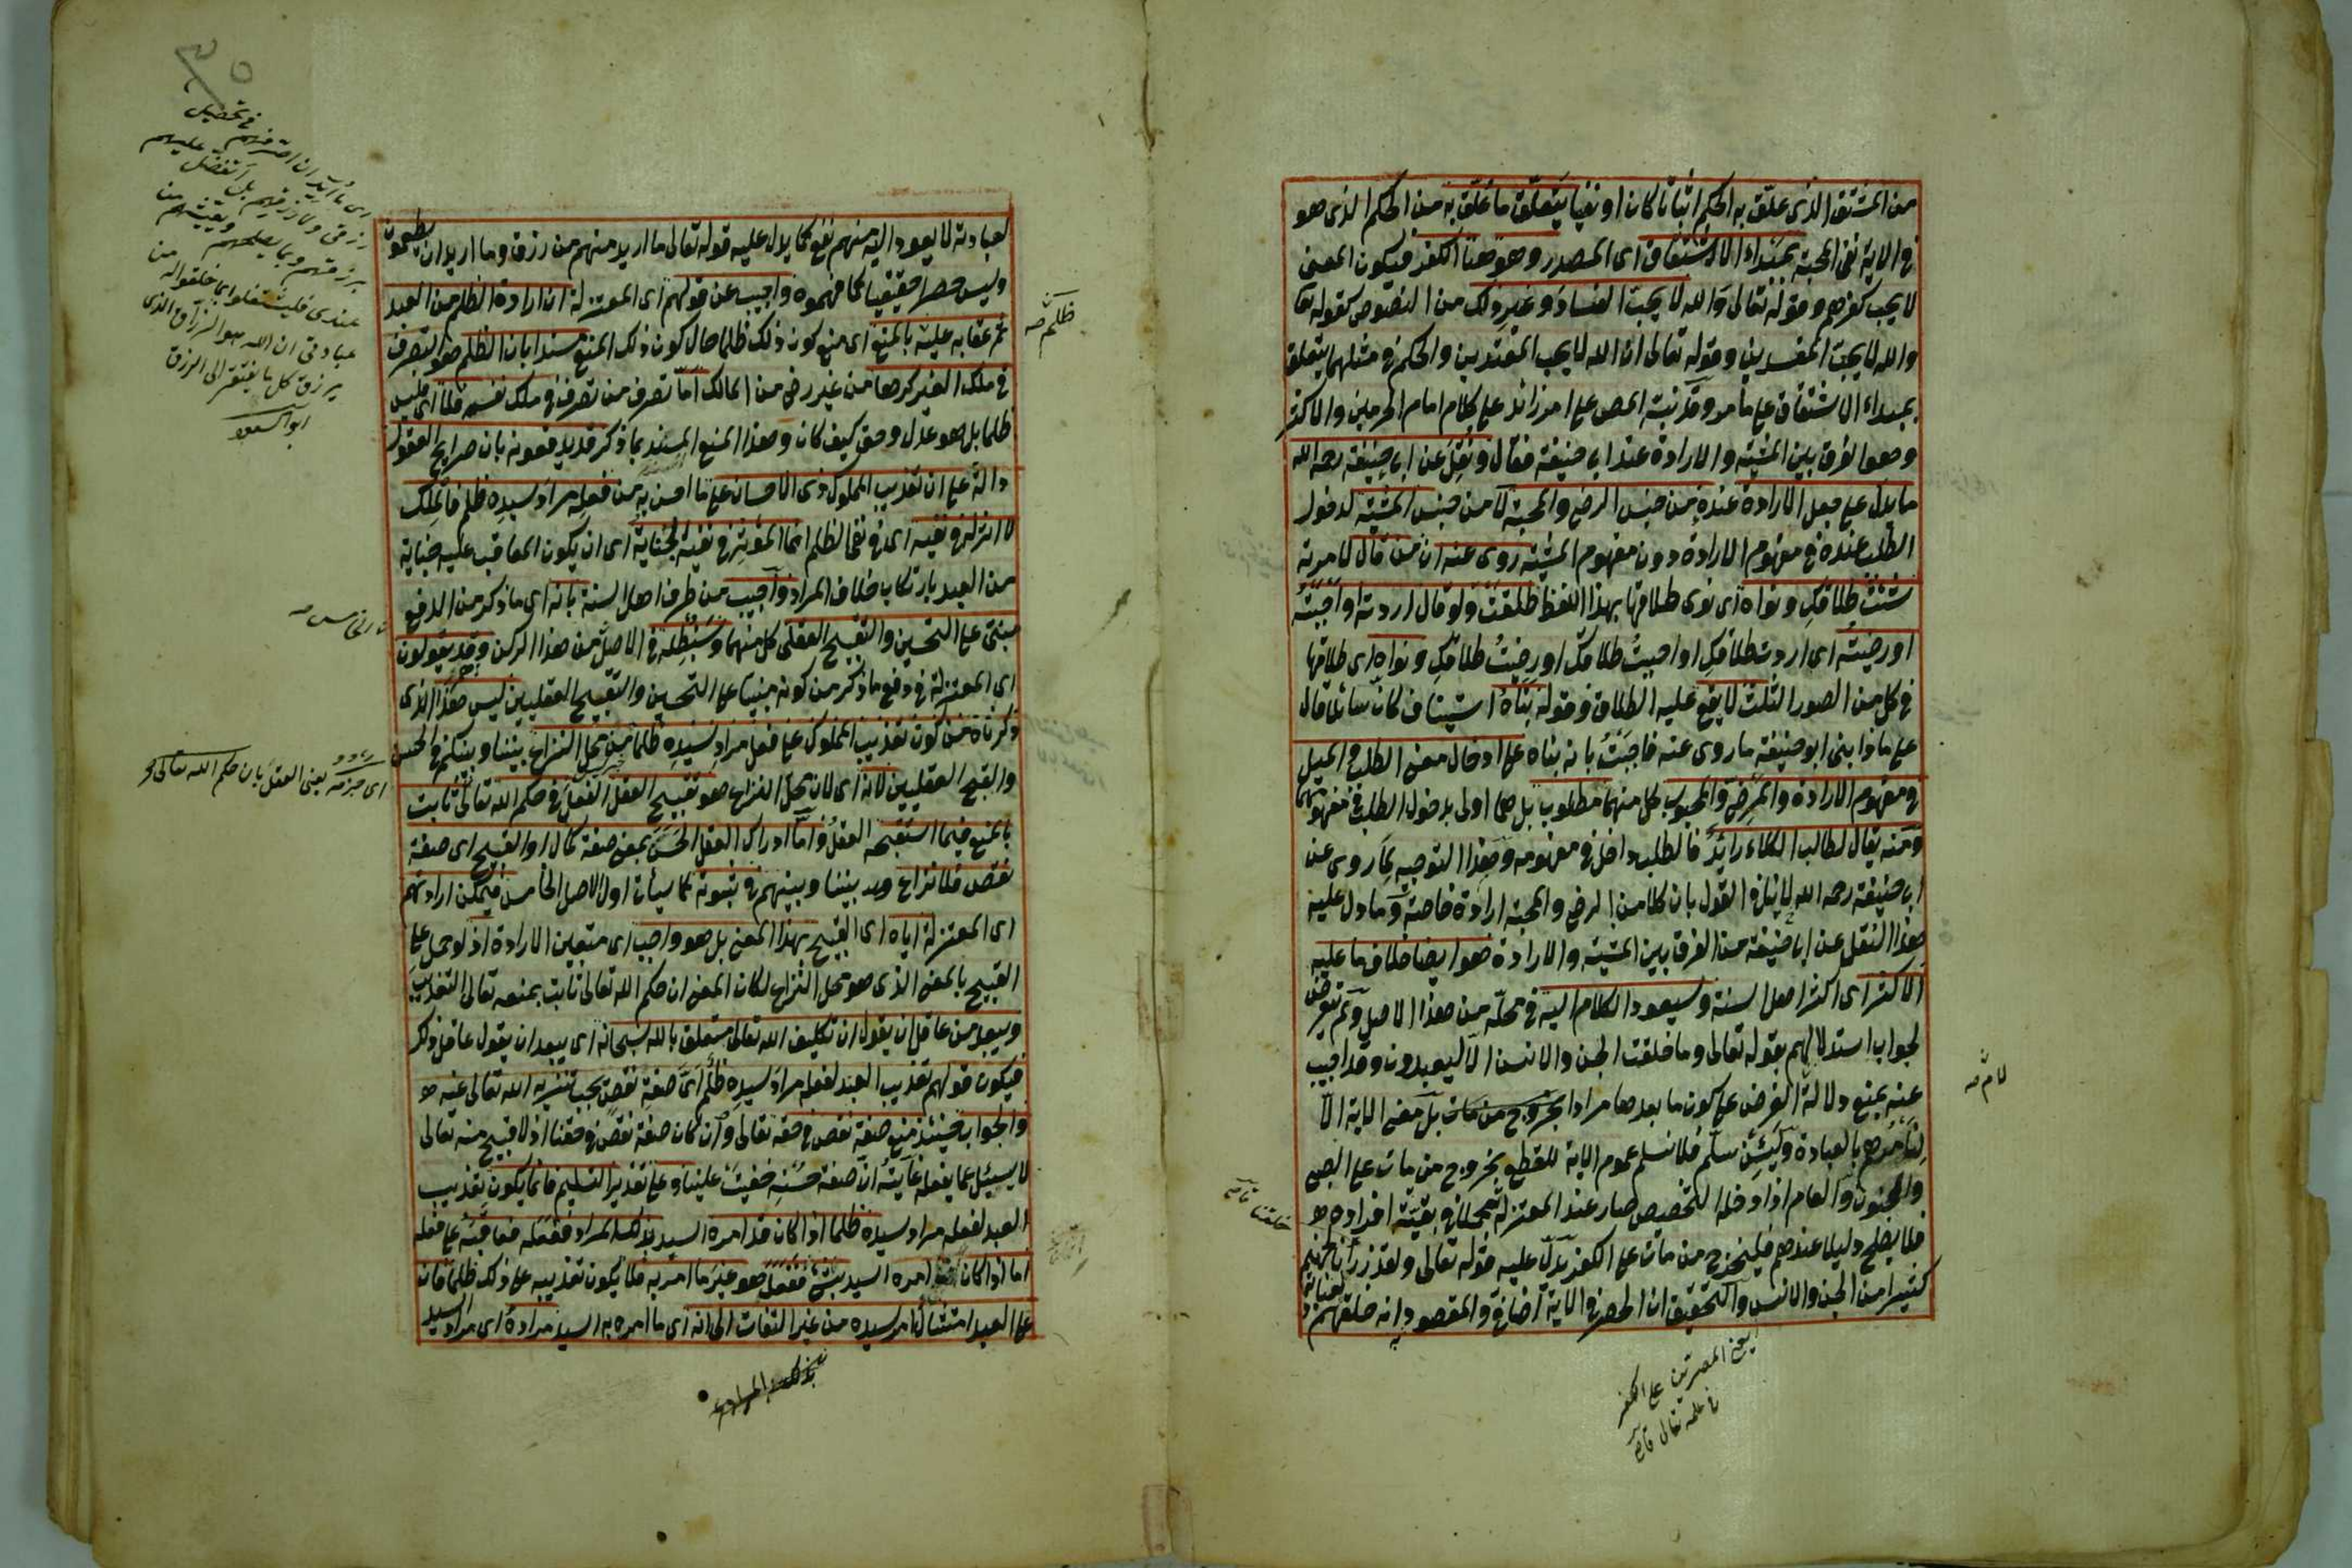 من المشتق الذى علق به الحكم اثباتا كان او نفيا يتعلق ما علق به من الحكم الذى هو
فى الاية نفى المحبة بمبداء الاشتقاق اى المصدر وهو هنا الكفر فيكون المعنى
لا يحب كفرهم وقوله تعالى والله لا يحب الفساد وغير ذلك من النصوص كقوله تعا
والله لا يحب المفسدين وقوله تعالى ان الله لا يحب المعتدين والحكم فى مثلهما يتعلق
بمبداء الاشتقاق على ما مر وقد نبه المص على امر زائد على كلام امام الحرمين والاكثر
وهو الفرق بين المشية والارادة عند ابى حنيفة فقال ونقل عن ابى حنيفة رحه الله
ما يدل على جعل الارادة عنده من جنس الرضى والمحبة لا من جنس المشية لدخول
الطلب عنده فى مفهوم الارادة دون مفهوم المشية روى عنه ان من قال لامرته
شئت طلاقك ونواه اى نوى طلاقها بهذا اللفظ طلقت ولو قال اردته او احببته
او رضيته اى اردت طلاقك او احببت طلاقك او رضيت طلاقك ونواه اى طلاقها
فى كل من الصور الثلث لا يقع عليه الطلاق وقوله بناه استيناف كان سائلا قال
على ماذا بنى ابو حنيفة ما روى عنه فاجبت بانه بناه على ادخال معنى الطلب والميل
فى مفهوم الارادة والمرضى والمحبوب كل منهما مطلوب بل هما اولى بدخول الطلب فى مفهومهما
ومنه يقال لطالب الكلاء رائد فالطلب داخل فى مفهومه وهذا التوجيه لما روى عن
ابى حنيفة رحه الله لا ينافى القول بان كلا من الرضى والمحبة ارادة خاصة وما دل عليه
هذا النقل عن ابى حنيفة من الفرق بين المشية والارادة هو ايضا خلاف ما عليه
الاكثر اى اكثر اهل السنة وسيعود الكلام اليه فى محله من هذا الاصل ولم تعرض
لجواب استدلالهم بقوله تعالى وما خلقت الجن والانس الا ليعبدون وقد اجيب
عنه بمنع دلالة الغرض على كون ما بعدها مرادا بل معنى الاية الا
لنأمرهم بالعبادة ولئن سلم فلا نسلم عموم الاية للقطع بخروج من مات على الصبى
والجنون والعام اذا دخله التخصيص صار عند المعتزلة مجملا فى بقية افراده
فلا يصلح دليلا عندهم فليخرج من مات على الكفر يدل عليه قوله تعالى ولقد ذرأنا لجهنم
كثيرا من الجن والانس والتحقيق ان الحصر فى الاية اضافى والمقصود به انه خلقهم
لام صه
يعنى المصرين على الكفر
فى علمه تعالى
لعبادته لا يعود اليه منهم نفع كما يدل عليه قوله تعالى ما اريد منهم من رزق وما اريد ان يطعمون
وليس حصرا حقيقيا كما فهموه واجيب عن قولهم اى المعتزلة ان ارادة الظلم من العبد
ثم عقابه عليه بالمنع اى منع كون ذلك ظلما حال كون ذلك المنع مسندا بان الظلم هو التصرف
فى ملك الغير كرها من غير رضى من المالك اما تصرف من تصرف فى ملك نفسه فلا اى فليس
ظلما بل هو عدل وحق كيف كان وهذا المنع المسند بما ذكر قد يدفعونه بان صرايح العقول
دالة على ان تعذيب المملوك ذى الاحسان على ما احسن به من فعله مراد سيده ظلم فالملك
لا اثر له فى نفيه اى فى نفى الظلم انما المؤثر فى نفيه الجناية اى ان يكون المعاقب عليه جناية
من العبد بارتكاب خلاف المراد واجيب من طرف اهل السنة بانه اى ما ذكر من الدفع
مبنى على التحسين والتقبيح العقلى كل منهما وسنبطله فى الاصل من هذا الركن وقد يقولون
اى المعتزلة فى دفع ما ذكر من كونه مبنيا على التحسين والتقبيح العقليين ليس هذا الذى
ذكرناه من كون تعذيب المملوك على فعل مراد سيده ظلما من محل النزاع بيننا وبينكم فى الحسن
والقبح العقليين لانه اى لان محل النزاع هو تقبيح العقل الفعل فى حكم الله تعالى ثابت
بالمنع فيما استقبحه العقل واما ادراك العقل الحسن بمعنى صفة كمال او القبيح اى صفة
نقص فلا نزاع فيه بيننا وبينهم فى ثبوته كما سيأتى اول الاصل الخامس فيمكن ارادتهم
اى المعتزلة اياه اى القبيح بهذا المعنى بل هو واجب اى متعين الارادة اذ لو حمل على
القبيح بالمعنى الذى هو محل النزاع لكان المعنى ان حكم الله تعالى ثابت بمنعه تعالى التعذيب
ويبعد من عاقل ان يقول ان تكليف الله تعالى متعلق بالله سبحانه اى يبعد ان يقول عاقل ذلك
فيكون قولهم تعذيب العبد لفعله مراد سيده ظلم اى صفة نقص يجب تنزيه الله تعالى عنه
والجواب حينئذ منع صفة نقص فى حقه تعالى وان كان صفة نقص فى حقنا اذ لا قبيح منه تعالى
لا يسئل عما يفعله غايته ان صفة حسنه خفيت علينا وعلى تقدير التسليم فانما يكون تعذيب
العبد لفعله مراد سيده ظلما اذا كان قد امره السيد بذلك المراد ففعله فعاقبه على فعله
اما اذا كان امره السيد بشئ ففعل هو غير ما امر به فلا يكون تعذيبه على ذلك ظلما فان
على العبد امتثال امر سيده من غير التفات الى انه اى ما امره به السيد مراده اى مراد السيد
ظلم صه
اى ما اريد ان اصرفهم فى تحصيل
رزقى ولا رزقهم بل اتفضل عليهم
برزقهم وبما يصلحهم ويعيشهم من
عندى فليشتغلوا بما خلقوا له من
عبادتى ان الله هو الرزاق الذى
يرزق كل ما يفتقر الى الرزق
ابو السعود
اى جزمه يعنى العقل بان حكم الله تعالى